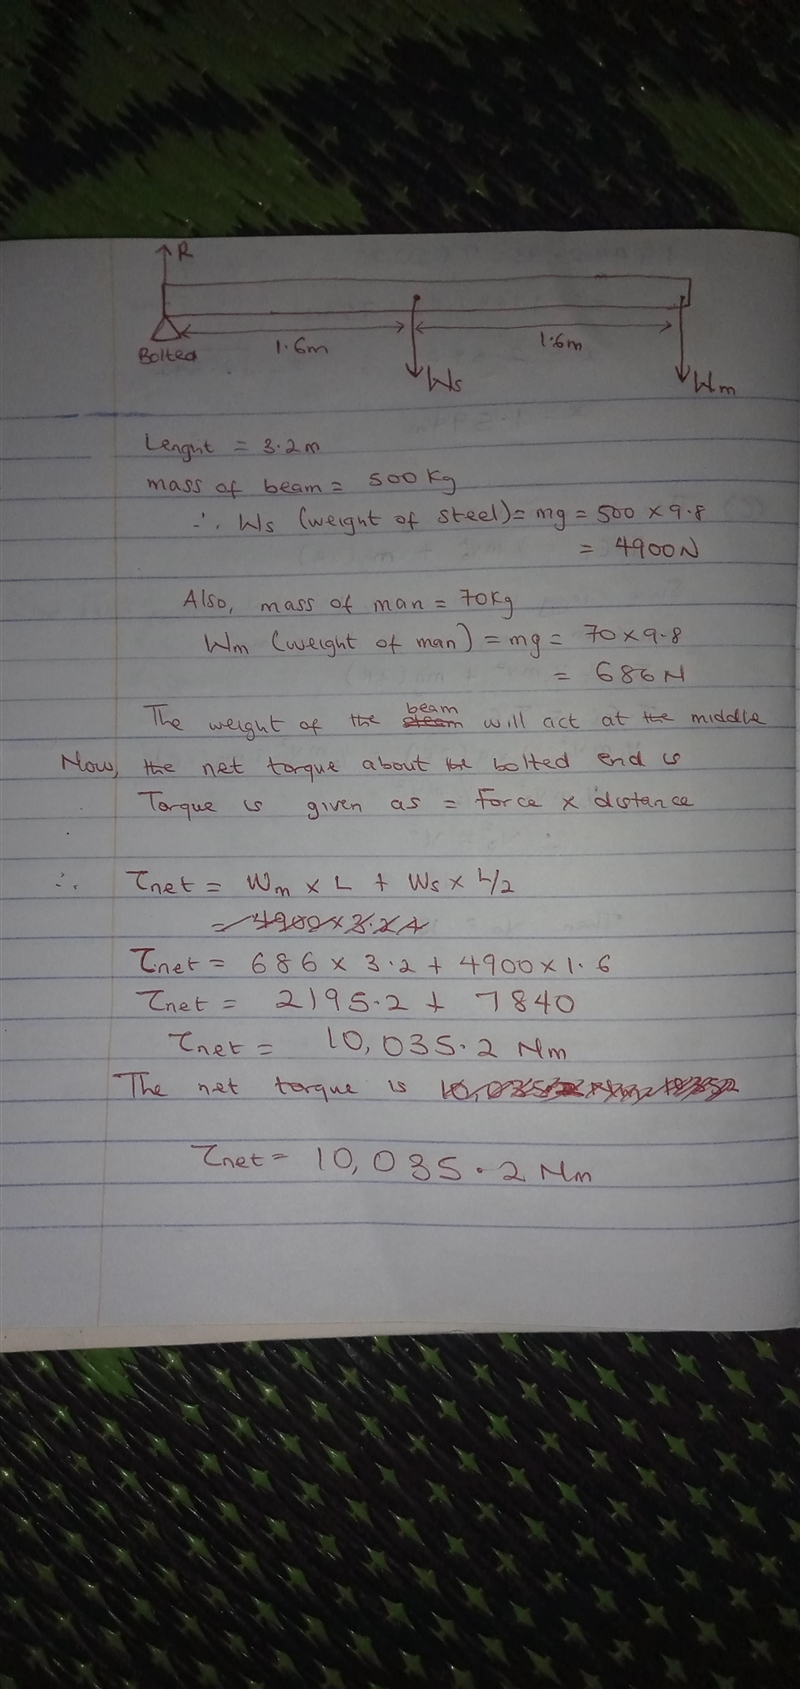 R
Bolted
1.6m
1.6m
Ws
Wm
Lenght = 3.2m
mass of beam = 500 Kg
∴ Ws (weight of steel) = mg = 500 × 9.8
= 4900N
Also, mass of man = 70Kg
Wm (weight of man) = mg = 70 × 9.8
= 686N
beam
The weight of the will act at the middle
Now, the net torque about the bolted end is
Torque is given as = Force × distance
∴ τnet = Wm × L + Ws × L/2
= 4900 × 3.2
τnet = 686 × 3.2 + 4900 × 1.6
τnet = 2195.2 + 7840
τnet = 10,035.2 Nm
The net torque is
τnet = 10,035.2 Nm